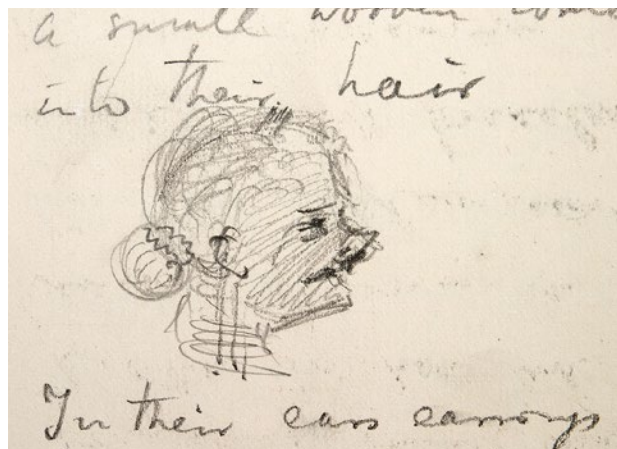 a small wooden comb
into their hair
In their ears earrings